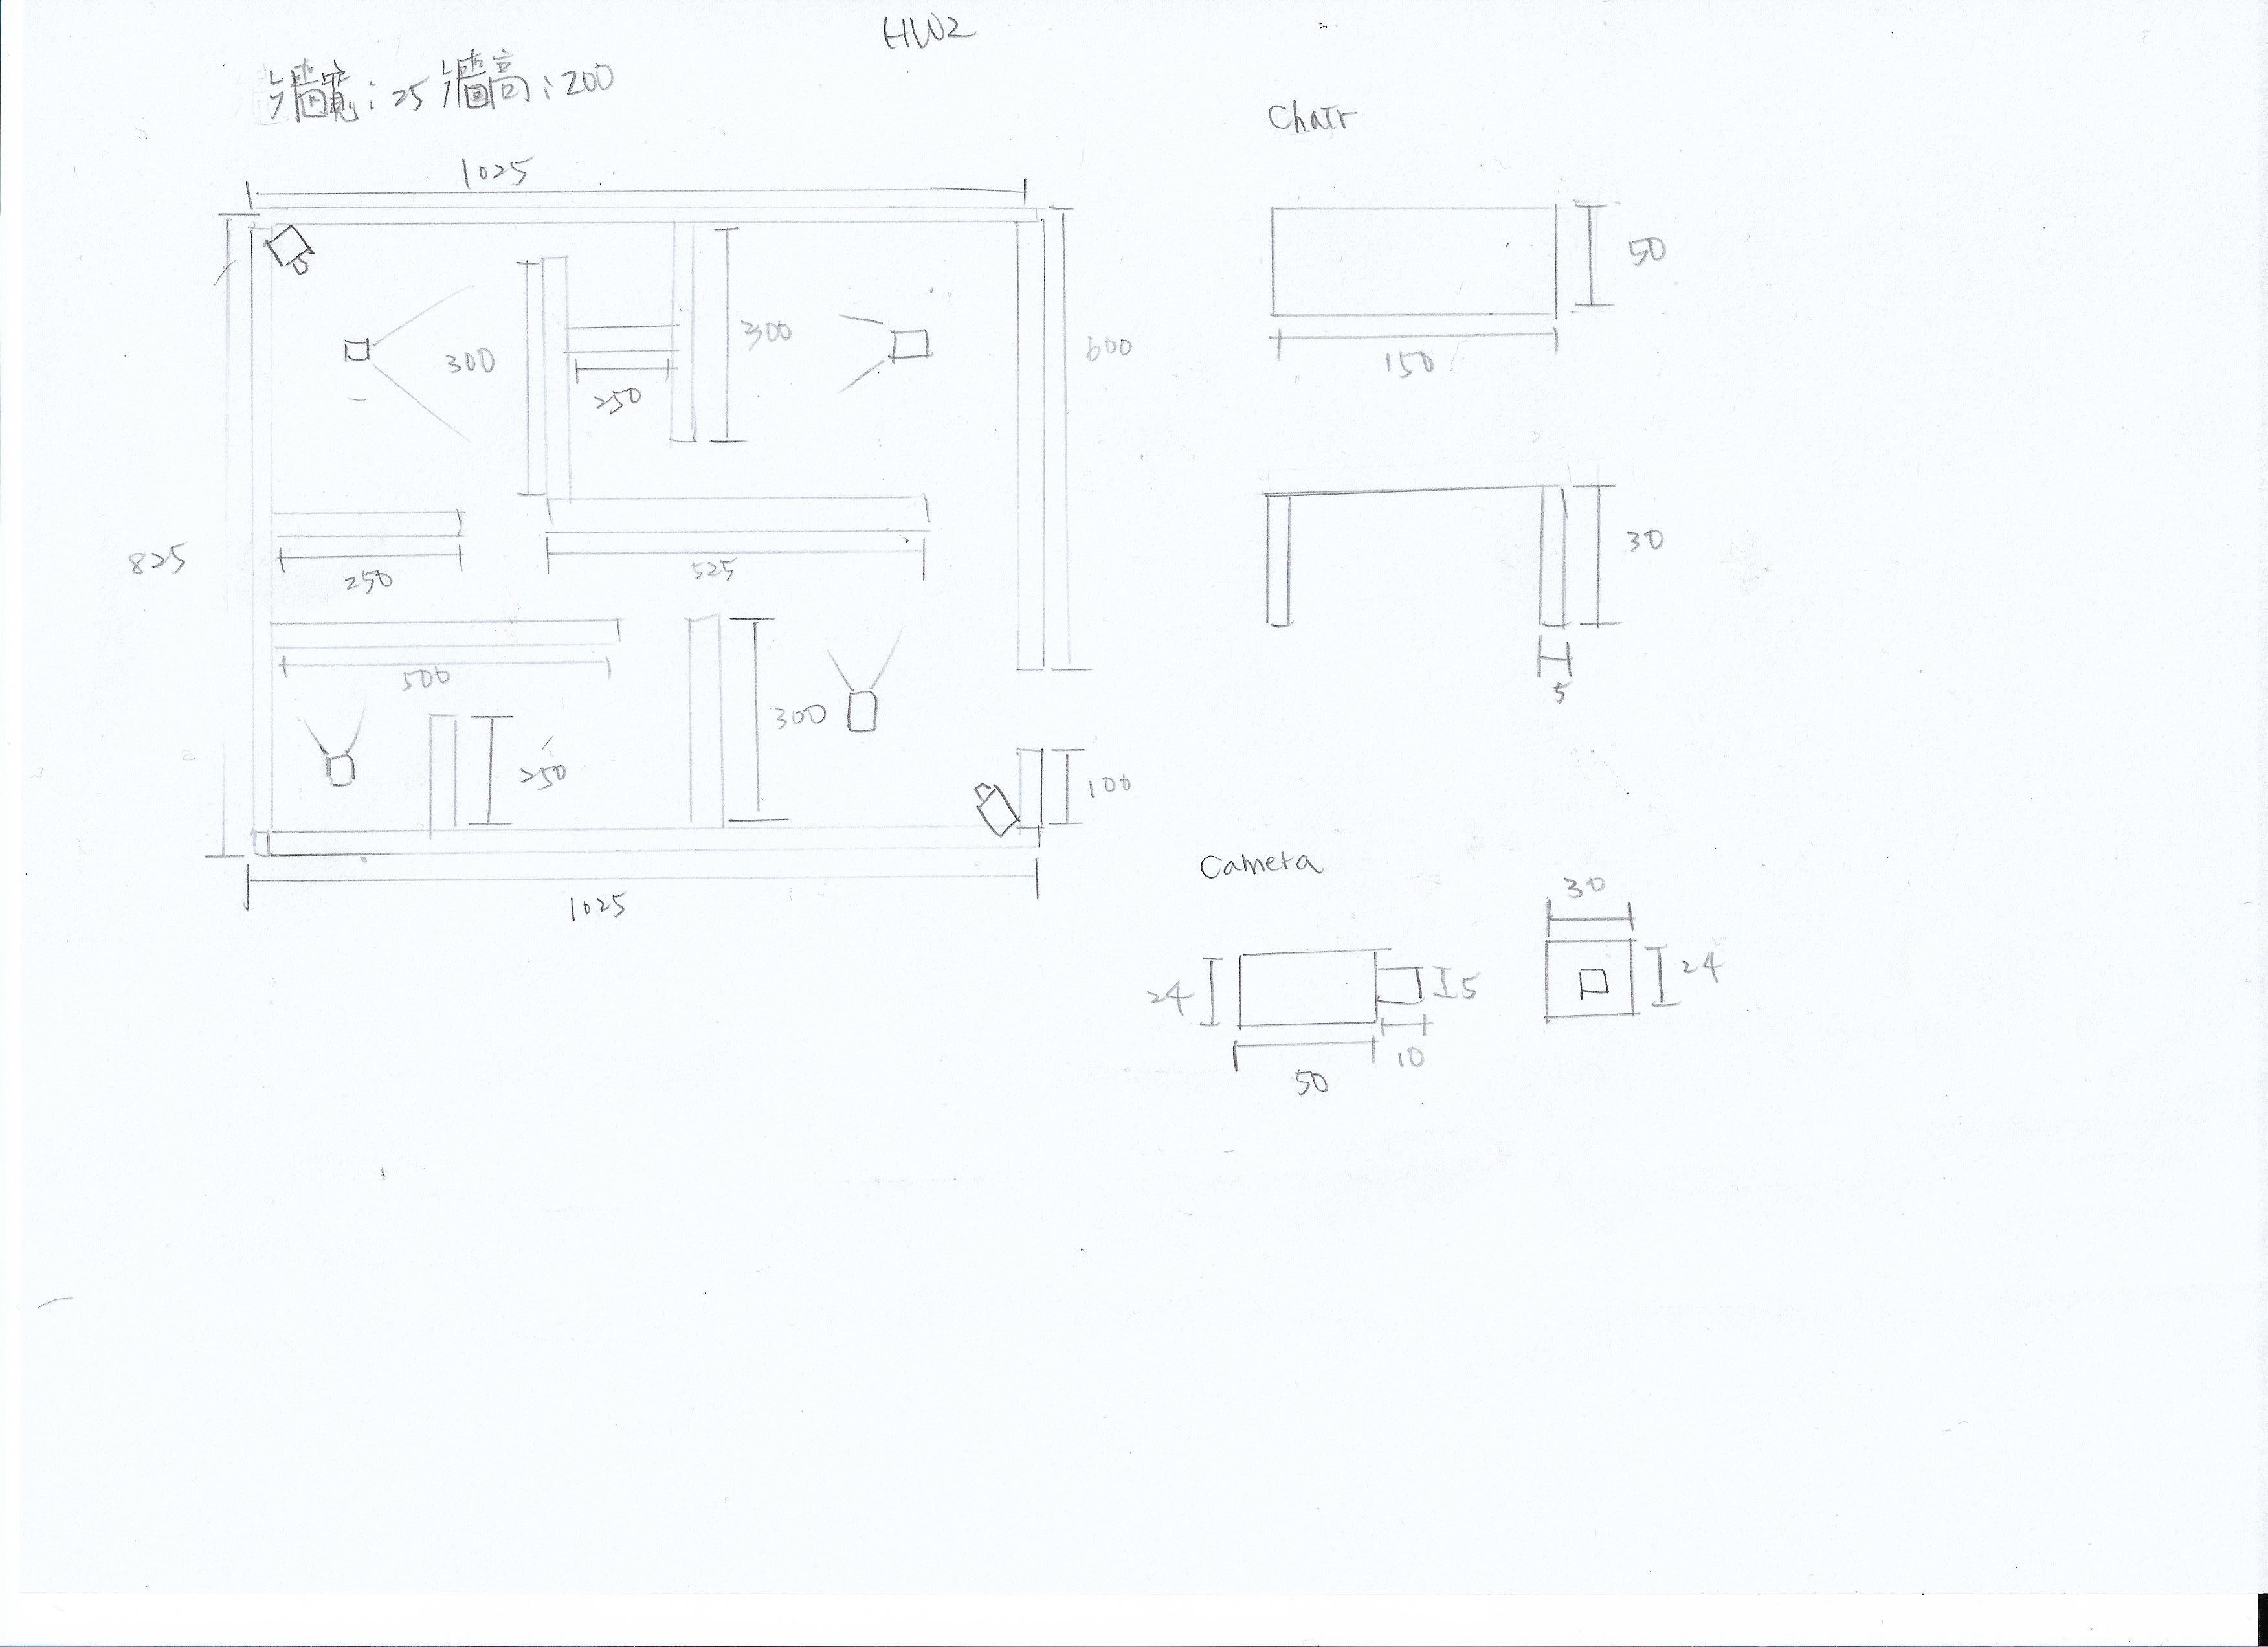 HW2
牆寬：25 牆高：200
1025
300
250
300
600
825
250
525
500
250
300
100
1025
Chair
50
150
30
5
Camera
24
50
10
5
30
24